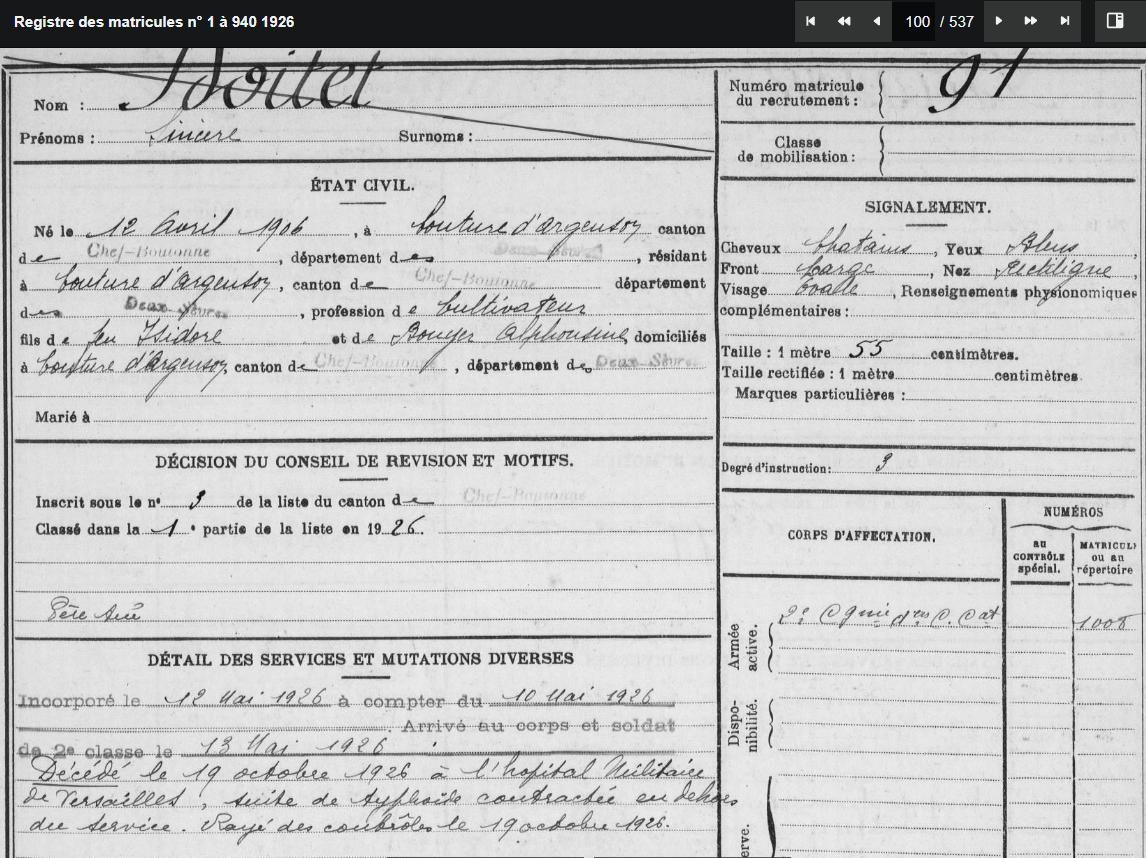 Registre des matricules n° 1 à 940 1926
100 / 537
Nom :
Prénoms : Sincère Surnoms :
ÉTAT CIVIL.
Né le 12 Avril 1906, à Couture d'argenson canton
de Chef-Boutonne, département des Deux-Sèvres, résidant
à Couture d'argenson, canton de Chef-Boutonne département
des Deux-Sèvres, profession de Cultivateur
fils de feu Isidore et de Bouyer Alphonsine, domiciliés
à Couture d'Argenson, canton de Chef-Boutonne, département des Deux-Sèvres
Marié à
DÉCISION DU CONSEIL DE REVISION ET MOTIFS.
Inscrit sous le n° 3 de la liste du canton de Chef-Boutonne
Classé dans la 1e partie de la liste en 1926.
DÉTAIL DES SERVICES ET MUTATIONS DIVERSES
Incorporé le 12 Mai 1926 à compter du 10 Mai 1926
Arrivé au corps et soldat
de 2e classe le 13 Mai 1926.
Décédé le 19 octobre 1926 à l'hopital Militaire
de Versailles, suite de typhoïde contractée en dehors
du service. Rayé des contrôles le 19 octobre 1926.
Numéro matricule du recrutement : 91
Classe de mobilisation :
SIGNALEMENT.
Cheveux Chatains, Yeux Bleus
Front Large, Nez Rectiligne
Visage Ovale, Renseignements physionomiques
complémentaires :
Taille : 1 mètre 55 centimètres.
Taille rectifiée : 1 mètre centimètres.
Marques particulières :
Degré d'instruction : 3
CORPS D'AFFECTATION.
NUMÉROS
au CONTRÔLE spécial.
MATRICULE ou au répertoire
Armée active.
Dispo-
nibilité.